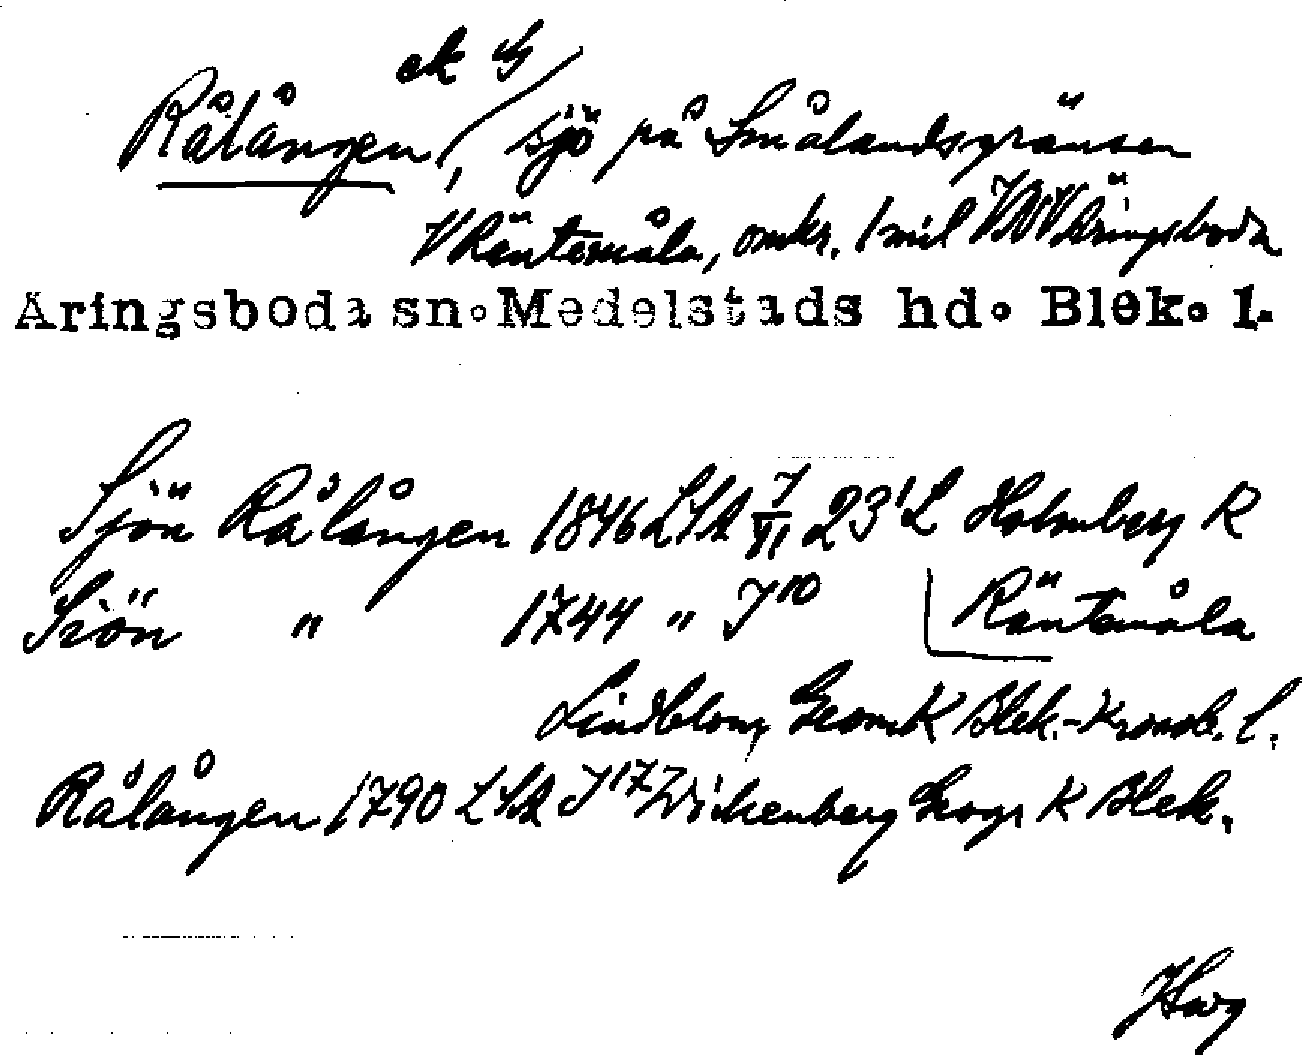 ek G
Rålången, sjö på Smålandsgränsen
V Räntemåla, omkr. 1 mil VNV Äringsboda
Äringsboda sn. Medelstads hd. Blek. l.
Sjön Rålången 1846 LSA 23 L Holmberg R
Siön " 1744 " J10 Räntemåla
Lindblom, Geom K Blek.-Kronob. l.
Rålången 1790 LSA J17 Wickenberg Geogr K Blek.